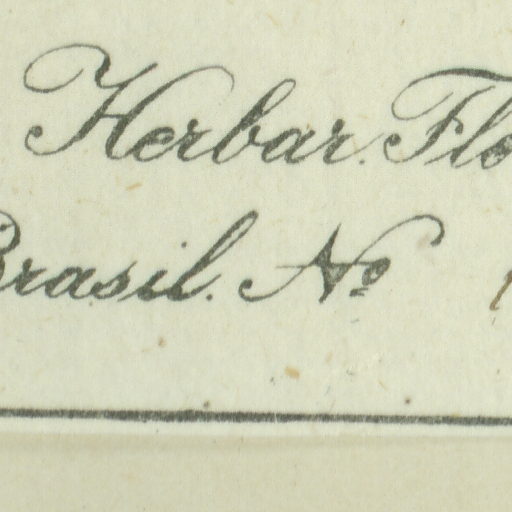 Herbar. Flo
Brasil. No